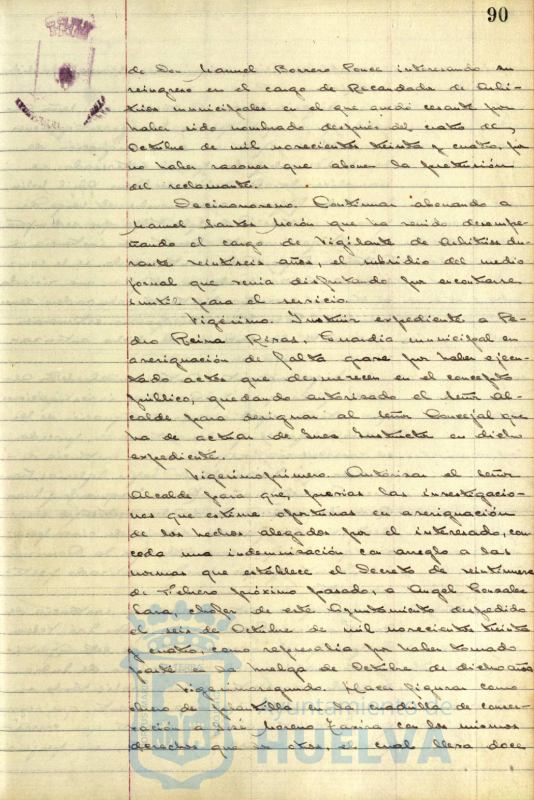 90
de Don Manuel Borrero Ponce interesando su
reingreso en el cargo de Recaudador de Arbi-
trios municipales en el que quedó cesante por
haber sido nombrado después del cuatro de
Octubre de mil novecientos treinta y cuatro, por
no haber razones que abonen la pretensión
del reclamante.
Decimonoveno. Continuar abonando a
Manuel Santos Morón que ha venido desempe-
ñando el cargo de Vigilante de Arbitrios du-
rante veintiseis años, el subsidio del medio
jornal que venia disfrutando por encontrarse
inutil para el servicio.
Vigésimo. Instruir expediente a Pe-
dro Reina Rivas, Guardia municipal en
averiguación de falta grave por haber ejecu-
tado actos que desmerecen en el concepto
público, quedando autorizado el señor Al-
calde para designar al señor Concejal que
ha de actuar de Juez Instructor en dicho
expediente.
Vigesimoprimero. Autorizar al señor
Alcalde para que, previas las investigacio-
nes que estime oportunas en averiguación
de los hechos alegados por el interesado, con-
ceda una indemnización con arreglo a las
normas que establece el Decreto de veintinueve
de Febrero próximo pasado, a Angel Gonzalez
Lara, chofer de este Ayuntamiento despedido
el seis de Octubre de mil novecientos treinta
y cuatro, como represalia por haber tomado
parte en la huelga de Octubre de dicho año
Vigesimosegundo. Hacer figurar como
obrero de plantilla en la cuadrilla de conser-
vación a José Moreno con los mismos
derechos que los otros, el cual lleva doce
Ayuntamiento de
HUELVA